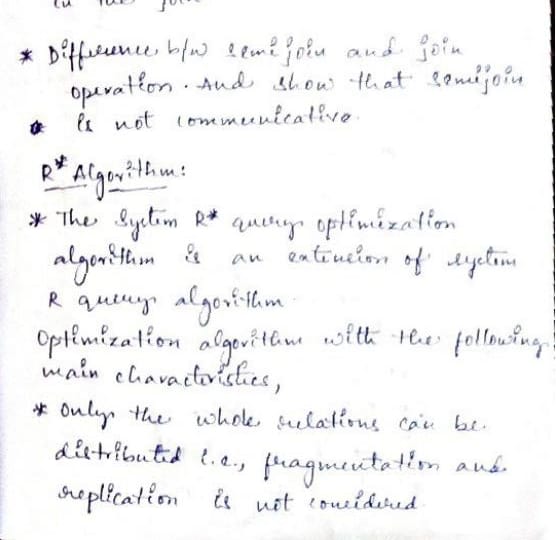 in the join
* Difference b/w semijoin and join
operation. And show that semijoin
* is not communicative.
R* Algorithm:
* The System R* query optimization
algorithm is an extension of system
R query algorithm.
Optimization algorithm with the following
main characteristics,
* Only the whole relations can be
distributed i.e., fragmentation and
replication is not considered.